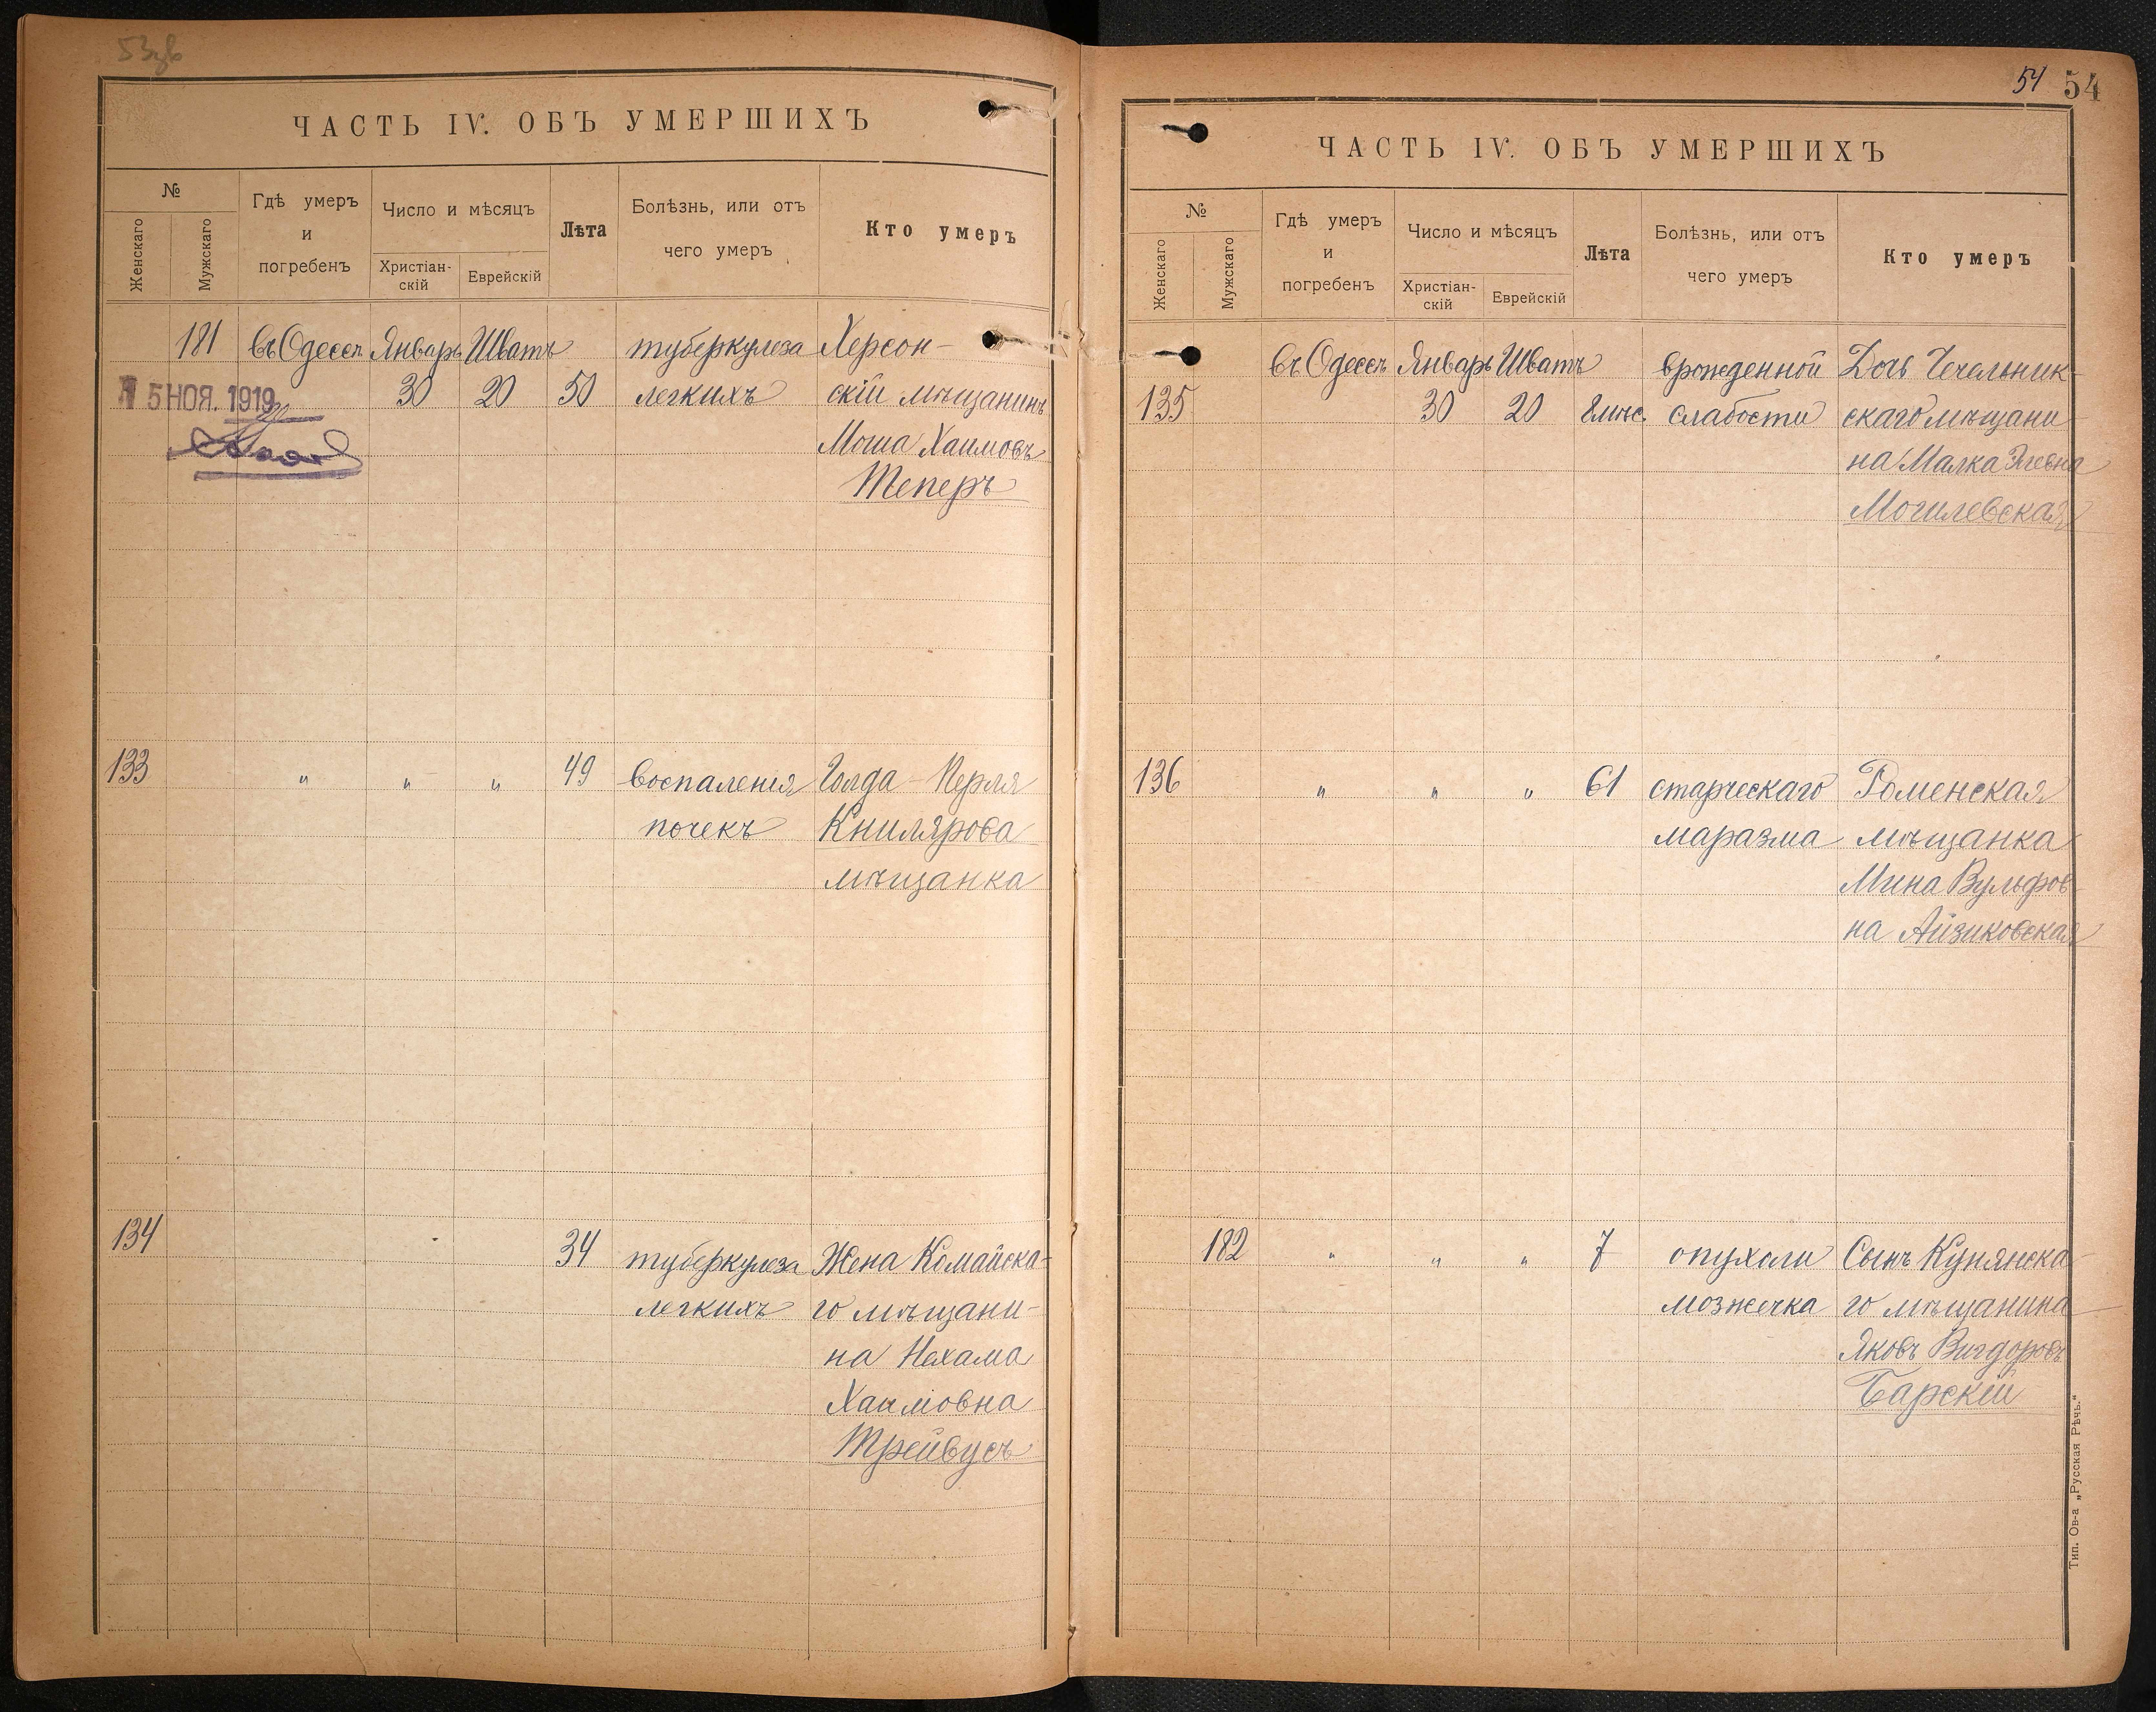 ЧАСТЬ IV. ОБЪ УМЕРШИХЪ
№
Женскаго
Мужскаго
Гдѣ умеръ
и
погребенъ
Число и мѣсяцъ
Христіан-
скій
Еврейскій
Лѣта
Болѣзнь, или отъ
чего умеръ
Кто умеръ
181 въ Одессѣ Январь Шватъ туберкулеза Херсон-
30 20 50 легкихъ скій мѣщанинъ
15 НОЯ. 1919
Моша Хаимовъ
Теперъ
133 " " " 49 воспаленія Голда-Перля
почекъ Книлярова
мѣщанка
134 34 туберкулеза Жена Комайска-
легкихъ го мѣщани-
на Нехама
Хаимовна
Трейвусъ
54 54
ЧАСТЬ IV. ОБЪ УМЕРШИХЪ
№
Женскаго
Мужскаго
Гдѣ умеръ
и
погребенъ
Число и мѣсяцъ
Христіан-
скій
Еврейскій
Лѣта
Болѣзнь, или отъ
чего умеръ
Кто умеръ
въ Одессѣ Январь Шватъ врожденной Дочь Чечельник-
135 30 20 8 мѣс. слабости скаго мѣщани-
на Малка Элевна
Могилевская
136 " " " 61 старческаго Роменская
маразма мѣщанка
Мина Вульфов-
на Айзиковская
182 " " " 7 опухоли Сынъ Купянска-
мозжечка го мѣщанина
Яковъ Вигдоровъ
Барскій
Тип. Ов-а „Русская Рѣчь."